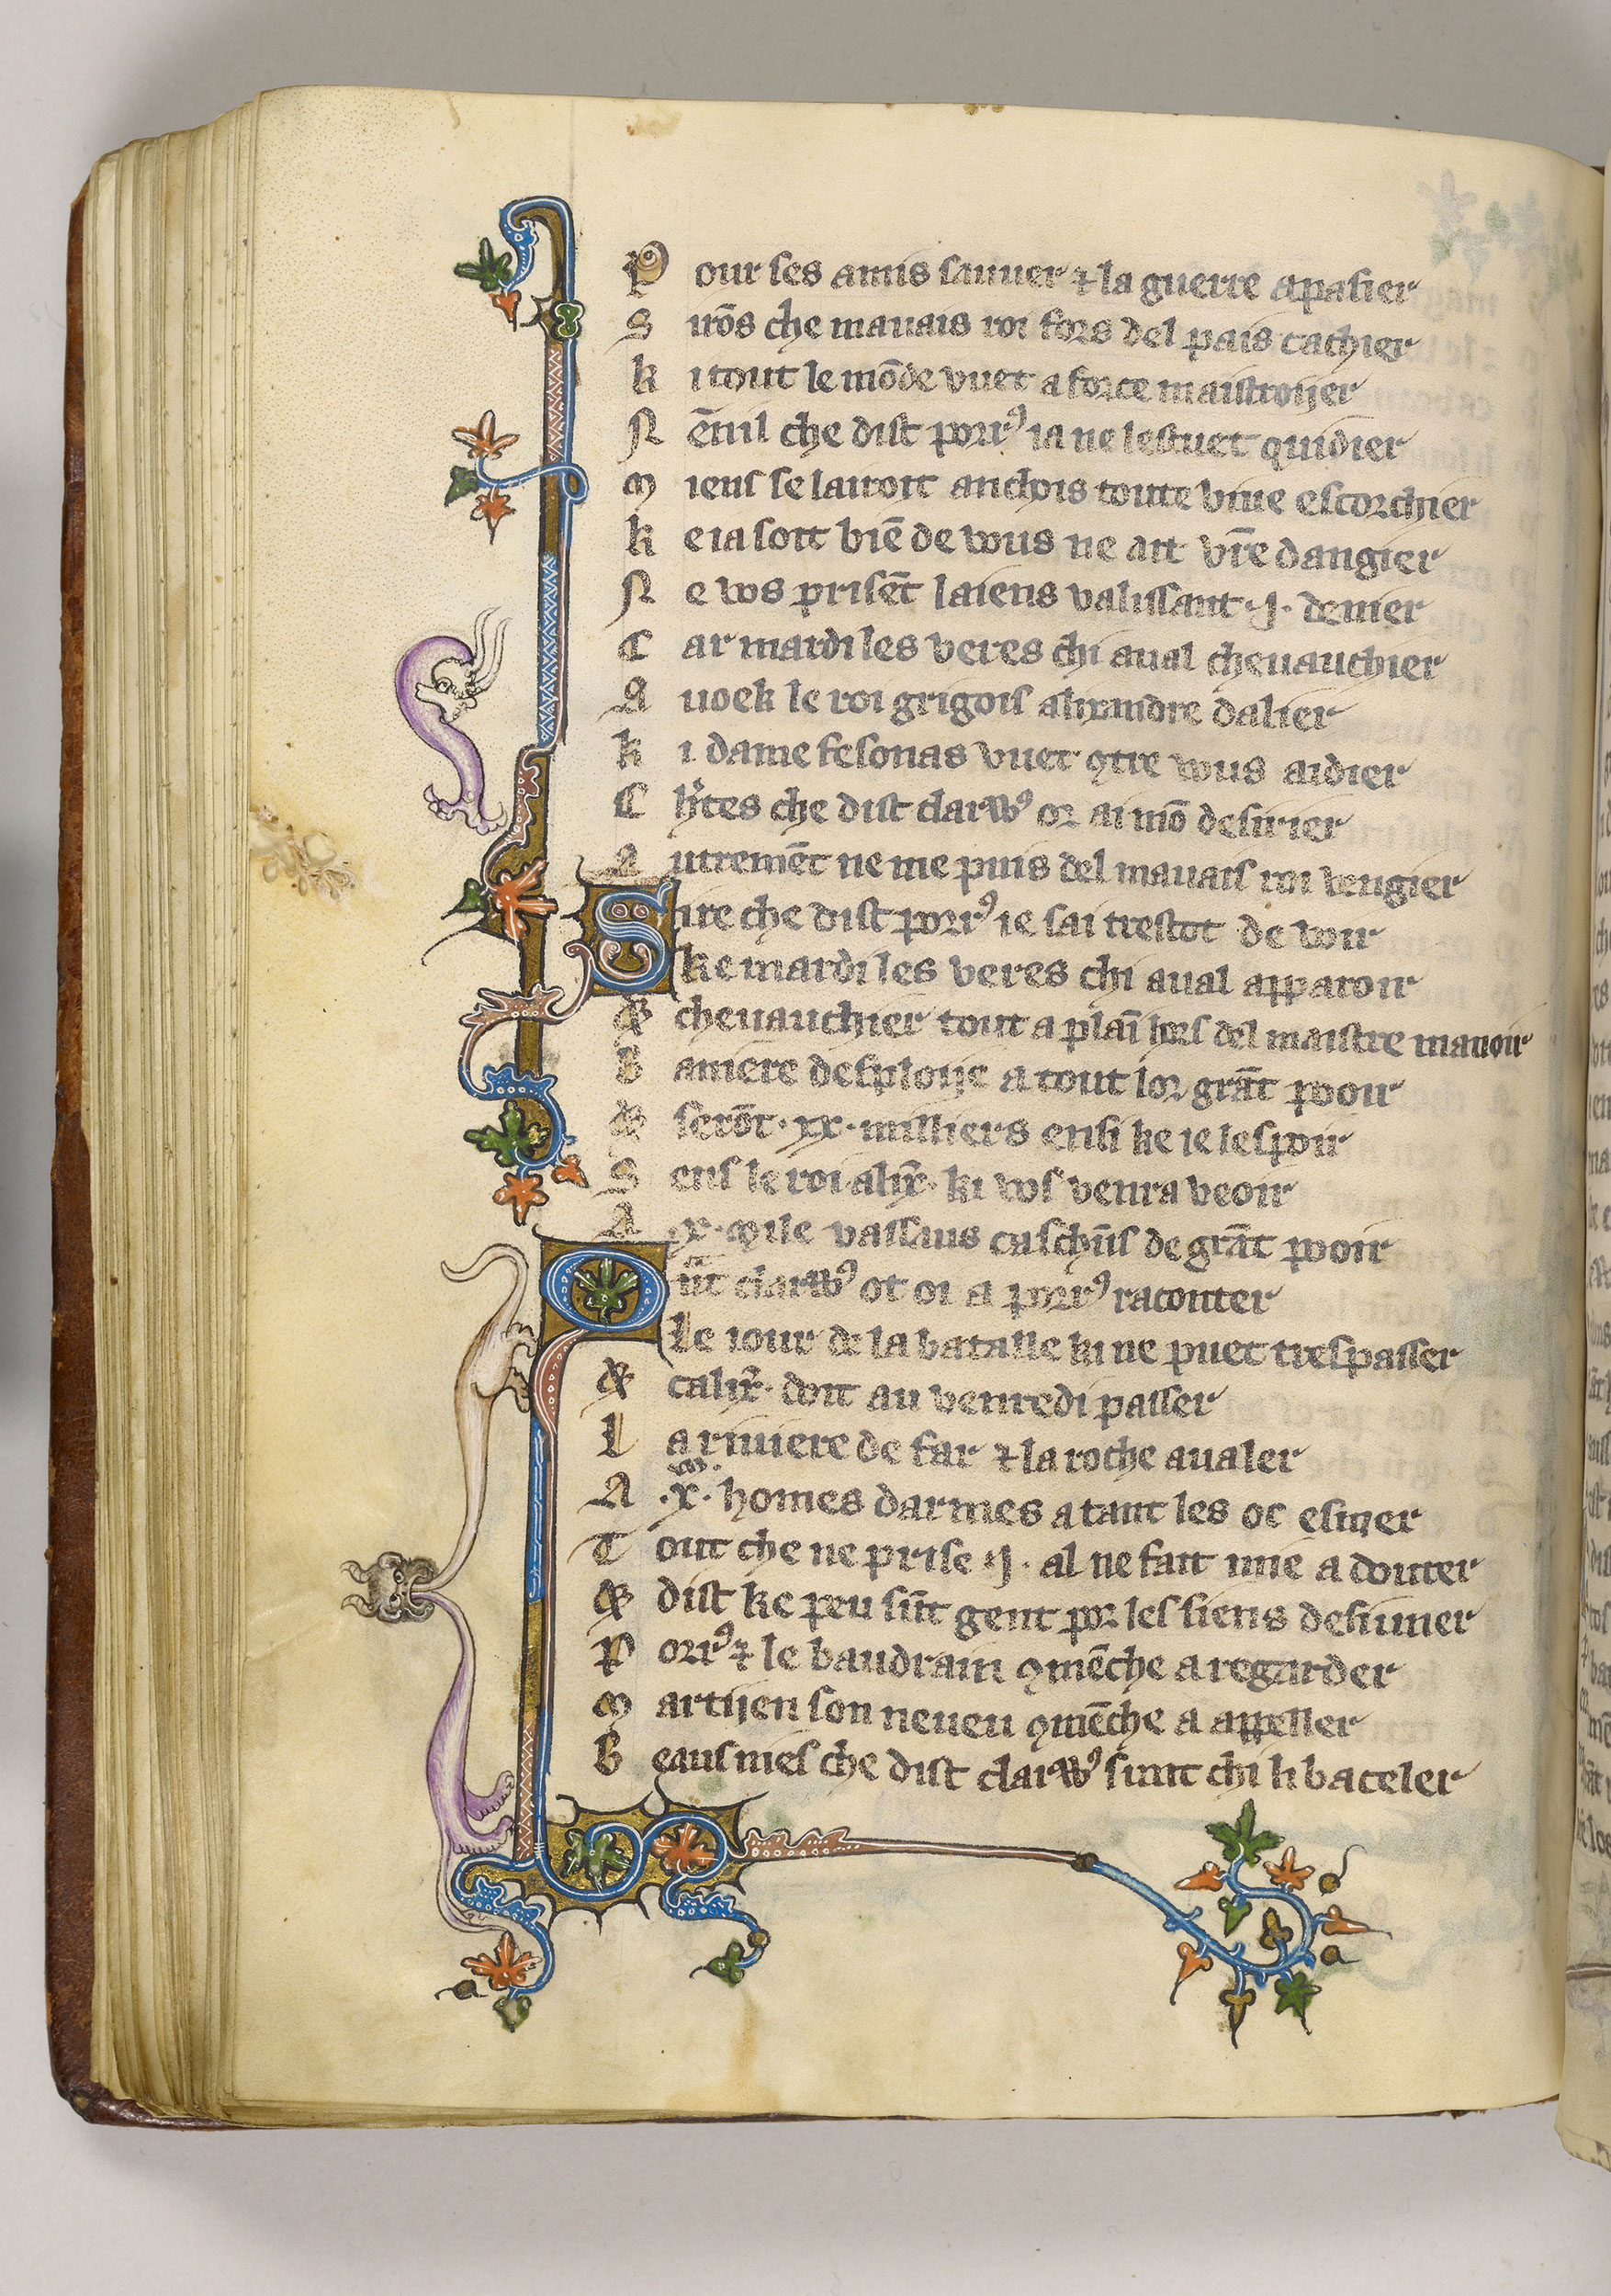 P our ses amis sauuer ⁊ la guerre apasier
S urōs che mauais roi fors del pais cachier
k i tout le mōde vuet a force maistroiier
N ēnil che dist porrꝰ ia ne lestuet quidier
M ieus se lairoit anchois toute viue escorchier
k e ia soit biē de vous ne ait vr̄e dangier
N e vos prisēt laiens valissant .j. denier
C ar mardi les veres chi aual cheuauchier
A uoek le roi grigois alixandre dalier
k i dame fesonas vuet ꝯtre vous aidier
C hͥtes che dist clarvꝰ or ai mō desirier
A utremēt ne me puis del mauais roi vengier
Sire che dist porrꝰ ie sai trestot de voir
ke mardi les veres chi aual apparoir
& cheuauchier tout a plaī hors del maistre manoir
B aniere desploiie a tout lor grāt pooir
& serōt .xx. milliers ensi ke ie lespoir
S ens le roi alix̄. ki vos venra veoir
A .x. mile vassaus caschūs de grāt pooir
Qūt clarvꝰ ot oi a porrꝰ raconter
Le iour de la bataille ki ne puet trespasser
& calix̄. doit au venredi passer
L a riuiere de far ⁊ la roche aualer
A .x.ͫ homes darmes a tant les oc esmer
T out che ne prise .j. al ne fait mie a douter
& dist ke peu sūt gent por les siens desiuner
P orrꝰ ⁊ le baudrain ꝯmēche a regarder
M artijen son neueu ꝯmēche a appeller
B eaus nies che dist clarvꝰ sunt chi li baceler